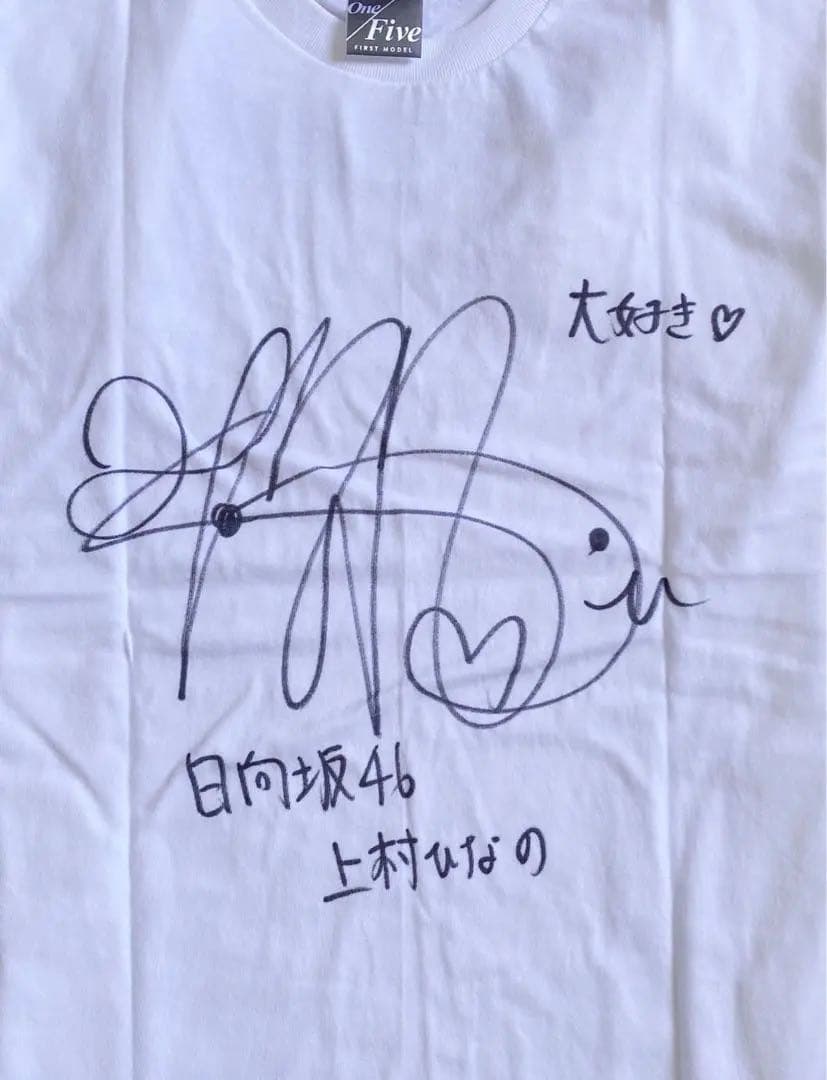 One
Five
FIRST MODEL
大好き♡
日向坂46
上村ひなの